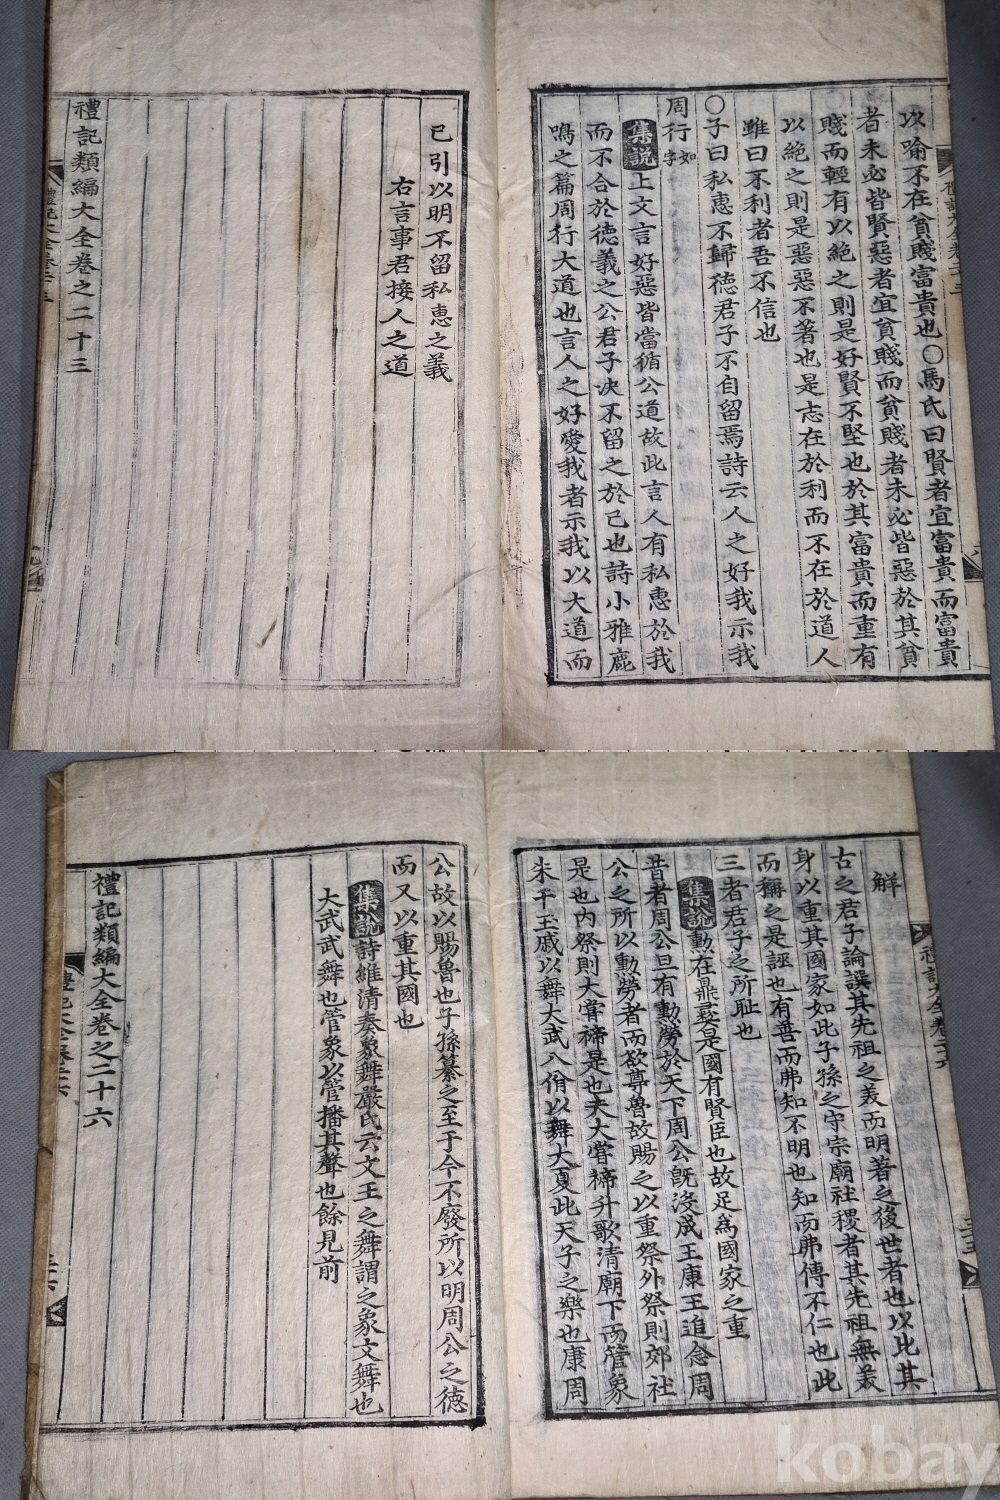 以喻不在貧賤富貴也〇馬氏曰賢者宜富貴而富貴
者未必皆賢惡者宜貧賤而貧賤者未必皆惡於其貧
賤而輕有以絶之則是好賢不堅也於其富貴而重有
以絶之則是惡惡不著也是志在於利而不在於道人
雖曰不利者吾不信也
〇子曰私惠不歸德君子不自留焉詩云人之好我示我
周行如字
集說上文言好惡皆當循公道故此言人有私惠於我
而不合於德義之公君子決不留之於己也詩小雅鹿
鳴之篇周行大道也言人之好愛我者示我以大道而
已引以明不留私惠之義
右言事君接人之道
禮記類編大全卷之二十三
解
古之君子論譔其先祖之美而明著之後世者也以比其
身以重其國家如此子孫之守宗廟社稷者其先祖無美
而稱之是誣也有善而弗知不明也知而弗傳不仁也此
三者君子之所耻也
集說勳在鼎彛是國有賢臣也故足為國家之重
昔者周公旦有勳勞於天下周公旣沒成王康王追念周
公之所以勳勞者而欲尊魯故賜之以重祭外祭則郊社
是也內祭則大嘗禘是也夫大嘗禘升歌清廟下而管象
朱干玉戚以舞大武八佾以舞大夏此天子之樂也康周
公故以賜魯也子孫纂之至于今不廢所以明周公之德
而又以重其國也
集說詩維清奏象舞嚴氏云文王之舞謂之象文舞也
大武武舞也管象以管播其聲也餘見前
禮記類編大全卷之二十六
kobay